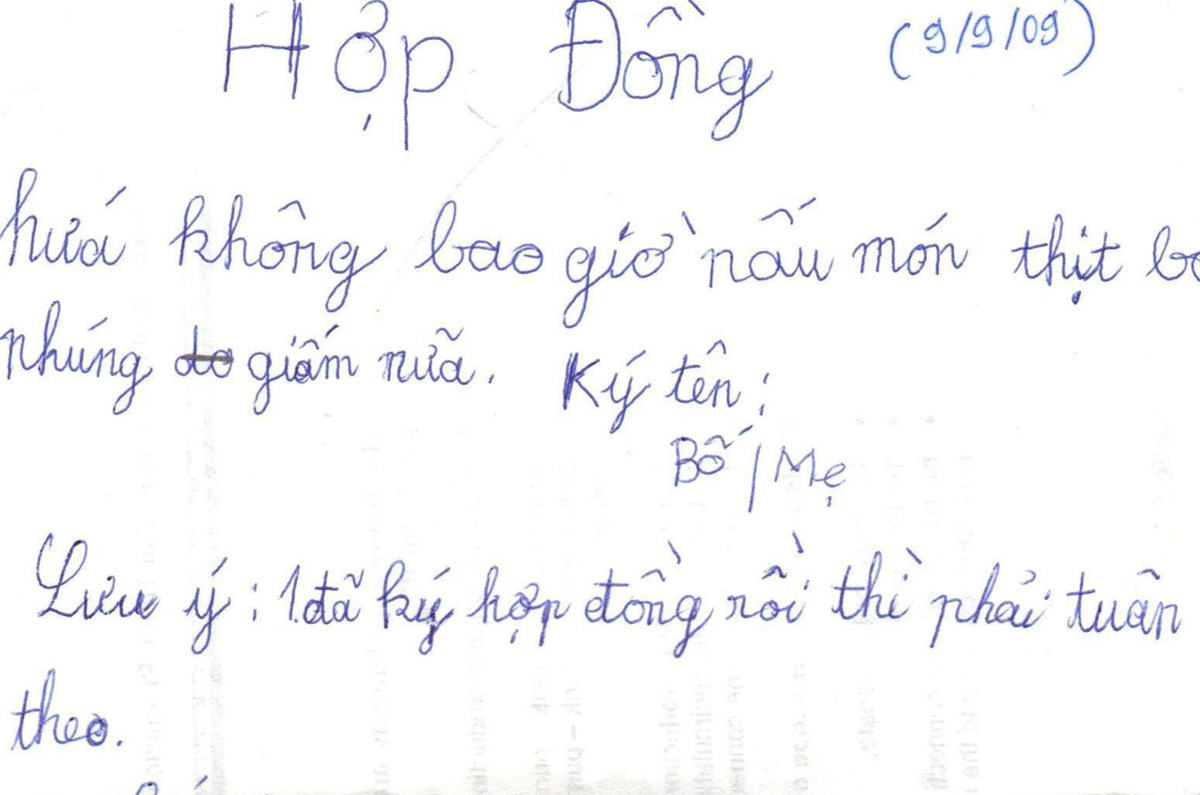 Hợp Đồng (9/9/09)
hứa không bao giờ nấu món thịt bò
nhúng do giấm nữa. Ký tên:
Bố / Mẹ
Lưu ý: 1. đã ký hợp đồng rồi thì phải tuân
theo.